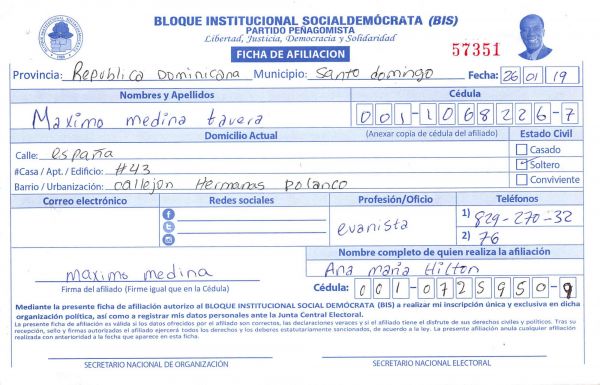 BLOQUE INSTITUCIONAL SOCIALDEMÓCRATA (BIS)
PARTIDO PEÑAGOMISTA
Libertad, Justicia, Democracia y Solidaridad
FICHA DE AFILIACION
57351
Provincia: Republica Dominicana Municipio: Santo domingo Fecha: 26 01 19
Nombres y Apellidos Cédula
Maximo medina tavera 001-1068226-7
Domicilio Actual (Anexar copia de cédula del afiliado) Estado Civil
Calle: españa
Casado
#Casa / Apt. / Edificio: #43
Soltero
Barrio / Urbanización: callejon Hermanas polanco
Conviviente
Correo electrónico Redes sociales Profesión/Oficio Teléfonos
evanista
1) 829-270-32
2) 76
Nombre completo de quien realiza la afiliación
maximo medina Ana maria Hilton
Firma del afiliado (Firme igual que en la Cédula) Cédula: 001-0725950-9
Mediante la presente ficha de afiliación autorizo al BLOQUE INSTITUCIONAL SOCIAL DEMÓCRATA (BIS) a realizar mi inscripción única y exclusiva en dicha
organización política, así como a registrar mis datos personales ante la Junta Central Electoral.
La presente ficha de afiliación es válida si los datos ofrecidos por el afiliado son correctos, las declaraciones veraces y si el afiliado tiene el disfrute de sus derechos civiles y políticos. Tras su
recepción, sello y firmas autorizadas el afiliado ejercerá todos los derechos y los deberes estatutariamente sancionados, de acuerdo a la ley. La presente afiliación anula cualquier afiliación
realizada con anterioridad a la fecha que aparece en esta ficha.
SECRETARIO NACIONAL DE ORGANIZACIÓN SECRETARIO NACIONAL ELECTORAL